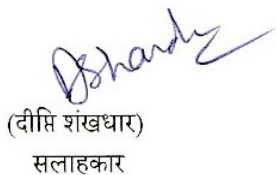 (दीप्ति शंखधार)
सलाहकार